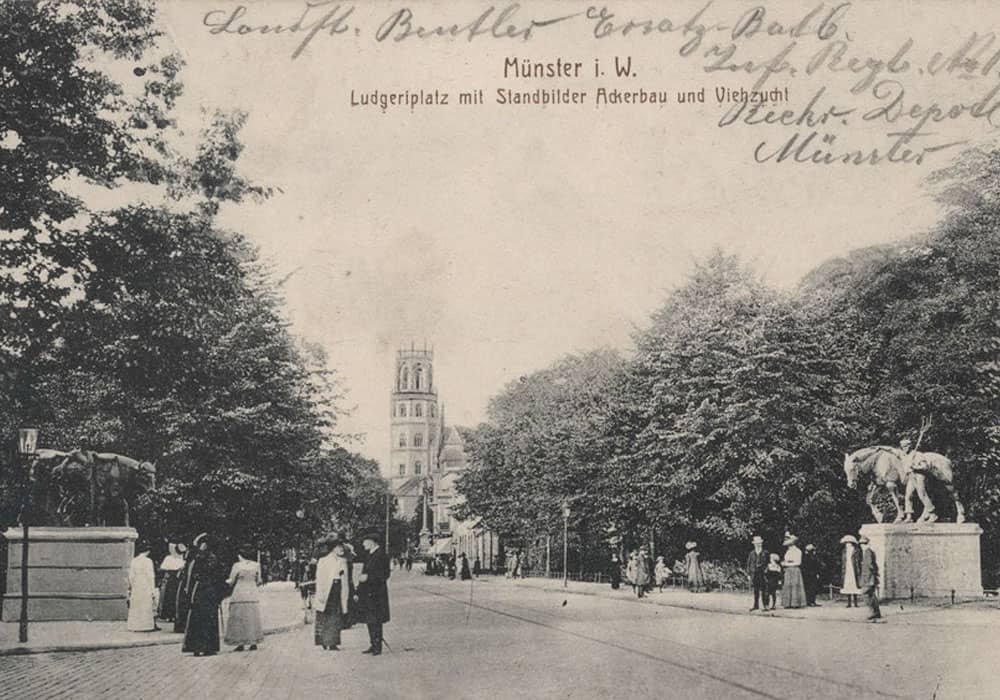 Landst. Bentler Ersatz-Batl.
Inf. Regt. No
Rekr. Depot
Münster
Münster i. W.
Ludgeriplatz mit Standbilder Ackerbau und Viehzucht